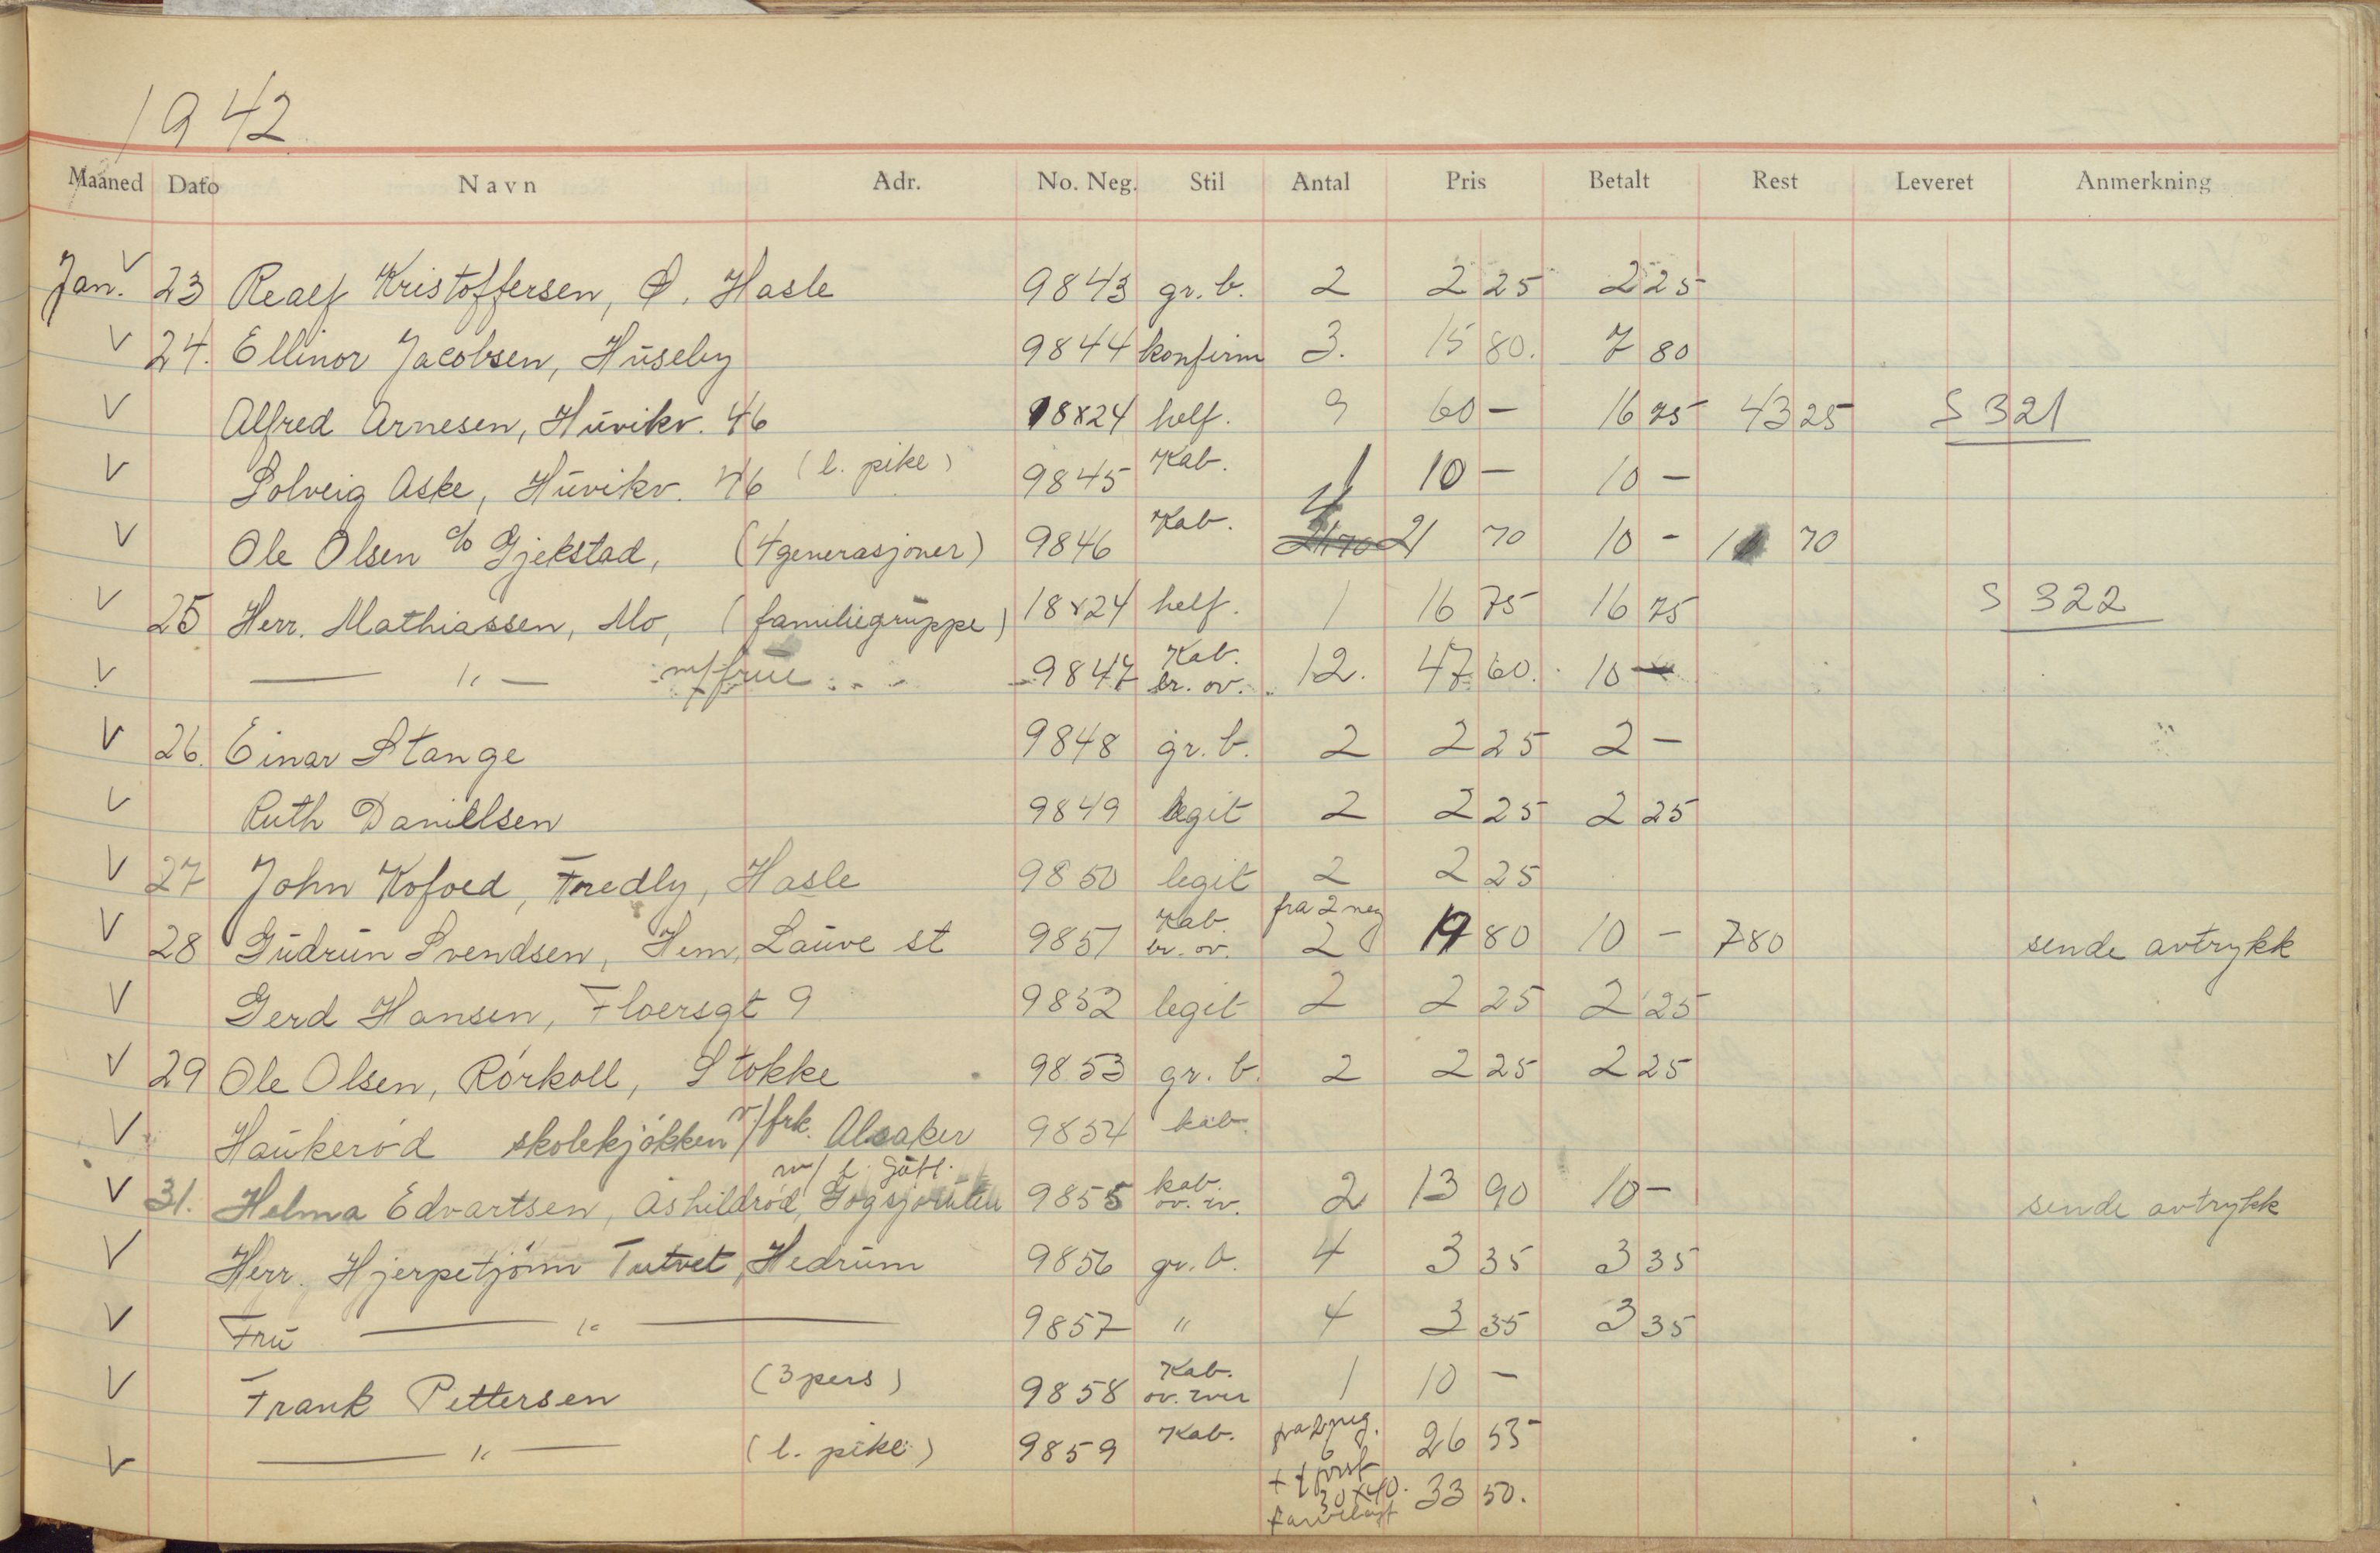 1942
Maaned Dato Navn Adr. No. Neg. Stil Antal Pris Betalt Rest Leveret Anmerkning
Jan. V 23 Realf Kristoffersen, Ø. Hasle 9843 gr. b. 2 2 25 2 25
V 24. Ellinor Jacobsen, Huseby 9844 konfirm 3. 15 80. 7 80
V Alfred Arnesen, Huvikv. 46 18x24 helf. 9 60 - 16 75 43 25 S 321
V Solveig Aske, Huvikv. 46 (l. pike) 9845 Kab. 1 10 - 10 -
V Ole Olsen c/o Gjekstad, (4 generasjoner) 9846 Kab. 4 21 70 10 - 11 70
V 25 Herr. Mathiassen, Mo, (familiegruppe) 18x24 helf. 1 16 75 16 75 S 322
V — " — m/frue 9847 Kab. br. ov. 12. 47 60. 10 -
V 26. Einar Stange 9848 gr. b. 2 2 25 2 -
V Ruth Danielsen 9849 legit 2 2 25 2 25
V 27 John Kofoed, Fredly, Hasle 9850 legit 2 2 25
V 28 Gudrun Svendsen, Hem, Lauve st 9851 Kab. br. ov. fra 2 neg 2 17 80 10 - 7 80 sende avtrykk
V Gerd Hansen, Floersgt 9 9852 legit 2 2 25 2 25
V 29 Ole Olsen, Rørkoll, Stokke 9853 gr. b. 2 2 25 2 25
V Haukerød skolekjøkken v/frk. Alsaker 9854 kab.
V 31. Helma Edvartsen, Åshildrød, m/ l. gutt. 9855 kab. 2 13 90 10 - sende avtrykk
V Herr. Hjerpetjønn Tutvet, Hedrum 9856 gr. b. 4 3 35 3 35
V Fru — " — 9857 " 4 3 35 3 35
V Frank Pettersen (3 pers) 9858 Kab. 1 10 -
V — " — (l. pike) 9859 Kab. fra 2 neg. 6 26 55
+ 1 forst. 30x40. 33 50.
farvelagt